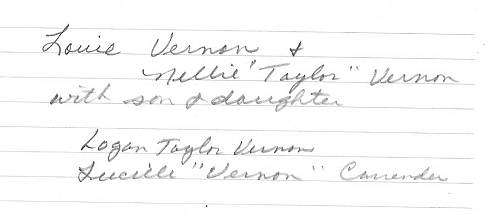 Louie Vernon &
Nellie "Taylor" Vernon
with son & daughter
Logan Taylor Vernon
Lucille "Vernon" Carrender